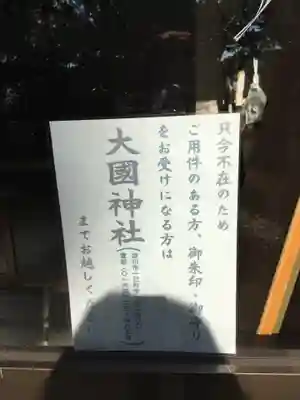 只今不在のため
ご用件のある方、御朱印・御守り
をお受けになる方は
大國神社
までお越しください